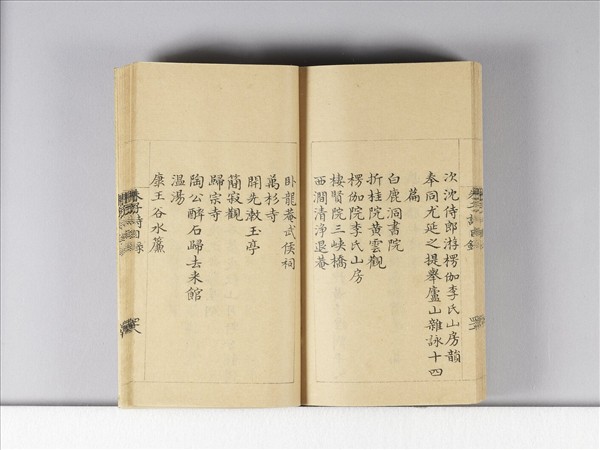 次沈侍郎游楞伽李氏山房韻
奉同尤延之提舉廬山雜詠十四
篇
白鹿洞書院
折桂院黃雲觀
楞伽院李氏山房
棲賢院三峽橋
西澗清淨退菴
臥龍菴武侯祠
萬杉寺
開先漱玉亭
簡寂觀
歸宗寺
陶公醉石歸去来館
溫湯
康王谷水簾